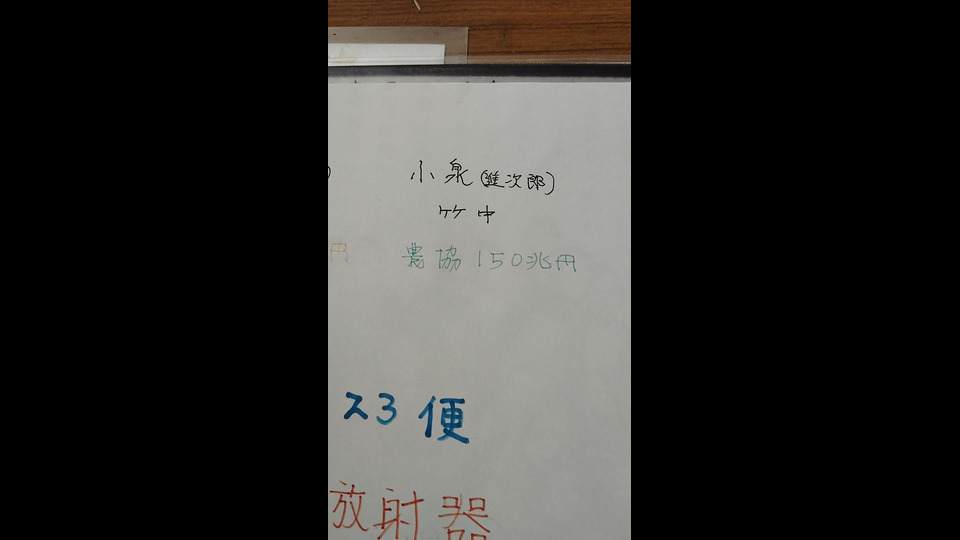 小泉(進次郎)
竹中
円 農協150兆円
ス3便
放射器